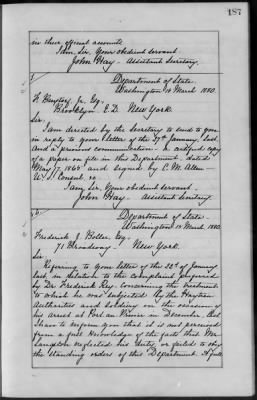 187
in their official accounts.
I am, Sir, Your obedient servant
John Hay - Assistant Secretary.
Department of State.
Washington 19 March 1880.
Esq.
Brooklyn E.D. New York.
Sir:
I am directed by the Secretary to send to you
in reply to your letter of the January last,
and a previous communication. A certified copy
of a paper on file in this Department, dated
May 7, 1865 and signed by C. M. Allen
U.S. Consul
I am Sir, Your obedient servant
John Hay - Assistant Secretary.
Department of State
Washington 19 March 1880.
Frederick J. Esq.
71 Broadway - New York.
Sir
Referring to your letter of the 22d of January
last, in relation to the complaint preferred
by Dr. Frederick Rey, concerning the treatment
to which he was subjected by the Haytian
Authorities and soldiery on the occasion of
his arrest at Port au Prince in December last
I have to inform you that it is not perceived
from a full knowledge of the facts that Mr.
Langston neglected his duty, or failed to obey
the standing orders of this Department. A full